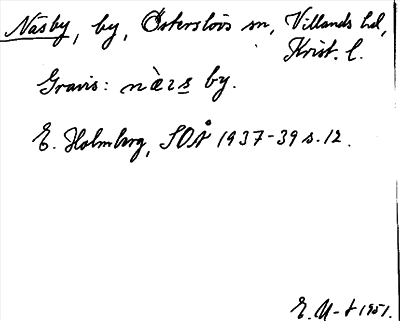 Näsby, by, Österslövs sn, Villands hd,
Krist. l.
Gravis: nàrs by.
E. Holmberg, SOÅ 1937-39 s. 12.
E. U-d 1951.